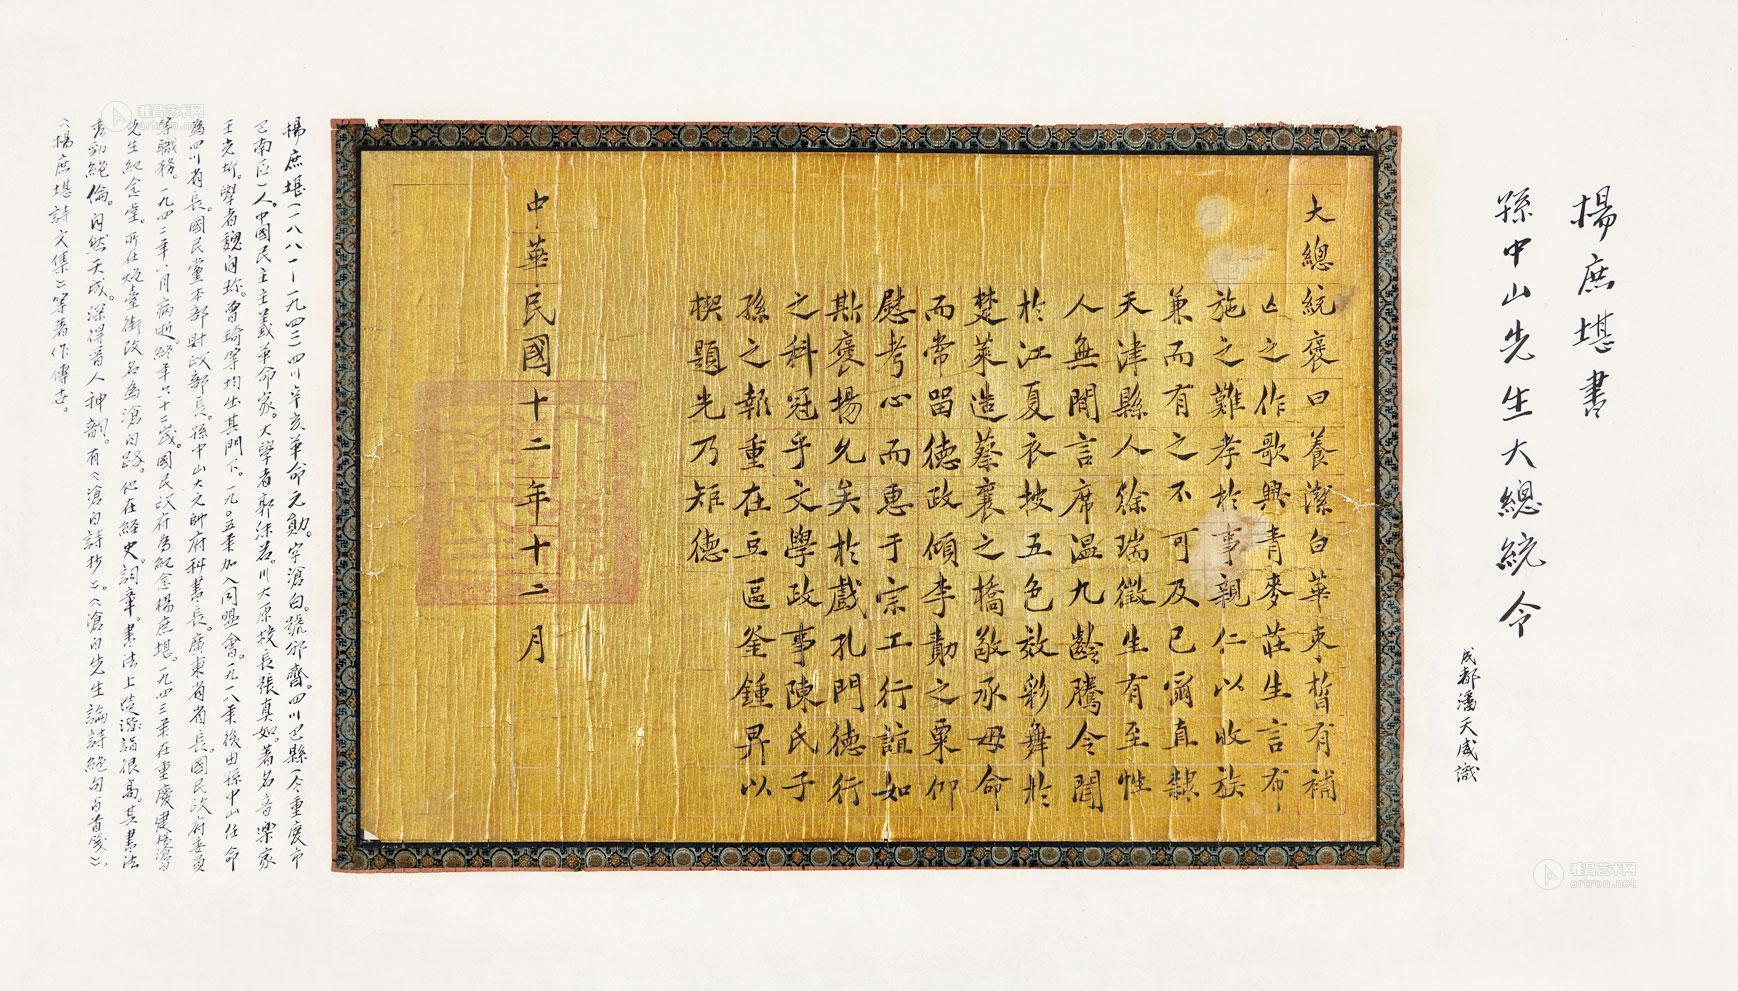 楊庶堪書
孫中山先生大總統令
成都潘天咸識
大總統褒曰養潔白華束皙有補
亾之作歌興青麥莊生言布
施之難孝於事親仁以收族
兼而有之不可及已爾直隸
天津縣人徐瑞徵生有至性
人無閒言席温九齡騰令聞
於江夏衣披五色效彩舞於
楚萊造蔡襄之橋敬承母命
而常留德政傾李勣之粟仰
慰考心而惠于宗工行誼如
斯褒揚允矣於戲孔門德行
之科冠乎文學政事陳氏子
孫之報重在豆區釜鍾畀以
楔題光乃矩德
中華民國十二年十二月
楊庶堪(一八八一一一九四二)四川辛亥革命元勛。字滄白。號邠齋。四川巴縣(今重慶市
巴南區)人。中國民主主義革命家。大學者郭沫若。川大原校長張真如。著名音樂家
王光祈。學者魏時珍。曾琦等均出其門下。一九〇五年加入同盟會。一九一八年後由孫中山任命
爲四川省長。國民黨本部財政部長。孫中山大元帥府秘書長。廣東省省長。國民政府委員
等職務。一九四二年八月病逝。終年六十二歲。國民政府爲紀念楊庶堪。一九四三年在重慶建楊滄白
先生紀念堂。所在炮臺街改名爲滄白路。他在經史。詞章。書法上造詣很高。其書法
秀勁絕倫。自然天成。深得晉人神韻。有《滄白詩抄》。《滄白先生論詩絕句百首箋》、
《楊庶堪詩文集》等著作傳世。
雅昌艺术网
artron.net
雅昌艺术网
artron.net